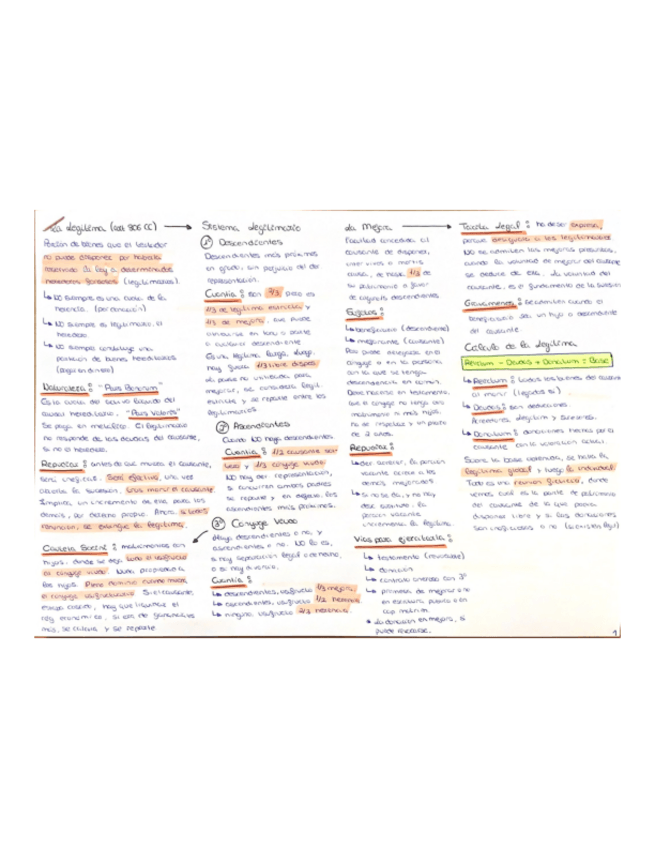 La Legítima (art 806 CC)
Porción de bienes que el testador
no puede disponer por haberla
reservado la ley a determinados
herederos forzosos (legitimarios)
↳ NO siempre es una cuota de la
herencia. (por donación)
↳ NO siempre es legitimario, el
heredero.
↳ NO siempre constituye una
porción de bienes hereditarios
Naturaleza: "Pars Bonorum"
Es la cuota del activo líquido del
caudal hereditario. "Pars Valoris"
Se paga en metálico. El legitimario
no responde de las deudas del causante,
si no es heredero.
Repudiar: antes de que muera el causante,
será ineficaz. Será efectivo, una vez
abierta la sucesión, tras morir el causante
Implica, un incremento de esa para los
demás, por derecho propio. Ahora, si todos
renuncian, se extingue la legítima.
Cautela Socini: matrimonios con
hijos, donde se deja todo el usufructo
al cónyuge viudo. Nuda propiedad a
los hijos. Pleno dominio cuando muera
el cónyuge usufructuario. Si el causante,
estaba casado, hay que liquidar el
rég económico, si era de gananciales
más, se calcula y se reparte
Sistema Legitimario
1º Descendientes
Descendientes más próximos
en grado, sin perjuicio del der
representación.
Cuantía: son 2/3, pero es
1/3 de legítima estricta y
1/3 de mejora, que puede
atribuirse en todo o parte
a cualquier descendiente
Es una legítima larga, luego,
hay quizá 1/3 libre dispos.
La parte no utilizada para
mejorar, se considera legít.
estricta y se reparte entre los
legitimarios
2º Ascendientes
Cuando NO haya descendientes.
Cuantía: 1/2 causante sol
tero y 1/3 cónyuge viudo
NO hay der representación,
si concurren ambos padres
se reparte y en defecto, los
ascendientes más próximos.
3º Cónyuge Viudo
Haya descendientes o no, y
ascendientes o no. NO lo es,
si hay separación legal o de hecho,
o si hay divorcio.
Cuantía:
↳ descendientes, usufructo 1/3 mejora.
↳ ascendientes, usufructo 1/2 herencia
↳ ninguno, usufructo 2/3 herencia.
La Mejora
Facultad concedida al
causante de disponer,
inter vivos o mortis
causa, de hasta 1/3 de
su patrimonio a favor
de algún/s descendientes.
Sujetos:
↳ beneficiario (descendiente)
↳ mejorante (causante)
Pero puede delegarse en el
cónyuge o en la persona
con la que se tenga
descendencia en común.
Debe hacerse en testamento,
que el cónyuge no tenga otro
matrimonio ni más hijos,
no se impidiese y un plazo
de 2 años.
Repudiar:
↳ der acrecer, la porción
vacante acrece a los
demás mejorados
↳ si no se da, y no hay
desc sustituto, la
porción vacante
incrementa la legítima.
Vías para ejercitarla:
↳ testamento (revocable)
↳ donación
↳ contrato oneroso con 3º
↳ promesa de mejorar o no
en escritura pública o en
cap matrim.
* La donación en mejora, sí
puede revocarse.
Tácita Legal: ha de ser expresa,
porque perjudica a los legitimarios
NO se admiten las mejoras presuntas,
cuando la voluntad de mejorar del causante
se deduce de ella. La voluntad del
causante, es el fundamento de la sucesión
Gravámenes: Se admiten cuando el
beneficiario sea un hijo o descendiente
del causante.
Cálculo de la Legítima
Relictum - Deudas + Donatum = Base
↳ Relictum: todos los bienes del causante
al morir (legados sí)
↳ Deudas: son deducciones.
↳ Donatum: donaciones hechas por el
causante con la valoración actual.
Sobre la base obtenida, se halla la
legítima global y luego la individual.
Todo es una reunión ficticia, donde
vemos cuál es la parte de patrimonio
del causante de la que podrá
disponer libre y si las donaciones
son inoficiosas o no
1